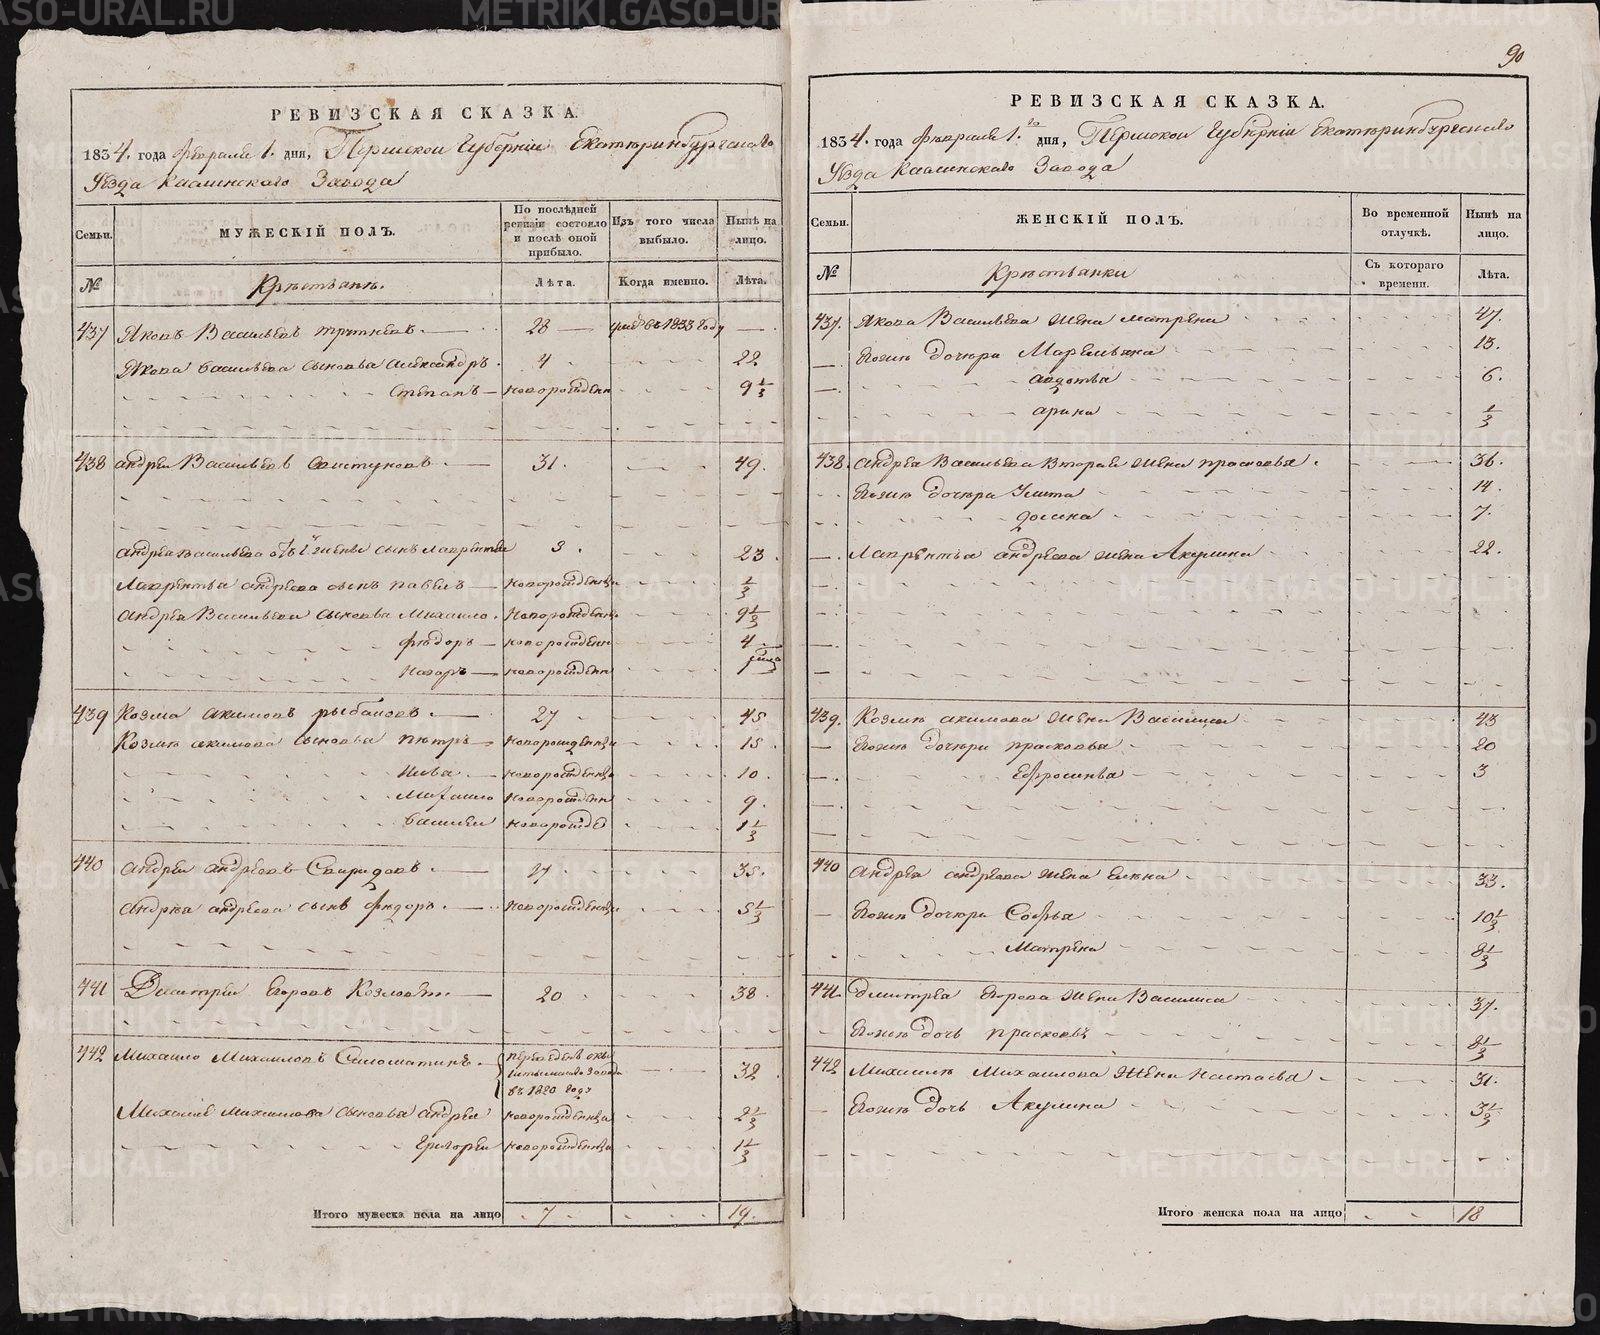 РЕВИЗСКАЯ СКАЗКА.
1834. года Февраля 1. дня, Пермской Губернии Екатеринбургскаго
Уезда Каслинскаго Завода
Семьи.
МУЖЕСКІЙ ПОЛЪ.
По послѣдней ревизіи состояло и послѣ оной прибыло.
Изъ того числа выбыло.
Нынѣ на лицо.
№
Крестьяне.
Лѣта.
Когда именно.
Лѣта.
437 Яковъ Васильевъ 28 въ 1833 году
Якова Васильева сыновья Александръ 4 22
Степанъ новорожденн 9 1/3
438 Андрей Васильевъ Свистуновъ 31. 49.
Андрея Васильева отъ 1й жены сынъ Лаврентей 3 23
Лаврентья Андреева сынъ Павелъ новорожденны 1/3
Андрея Васильева сыновья Михайло новорожденны 9 1/3
Федоръ новорожденн 4
Назаръ новорожденн
439 Козма Акимовъ Рыбаковъ 27 45
Козмы Акимова сыновья Петръ новорожденны 15
новорожденны 10
Михайло новорожденн 9.
Василей новорожде 1 1/3
440 Андрей Андреевъ Свиридовъ 35.
Андрея Андреева сынъ Федоръ новорожденны 5 1/3
441 Дмитрей Егоровъ 20 38
442 Михайло Михайловъ Саломатинъ переведенъ
Кыштымскаго завода 32
въ 1820 году
Михайлы Михайлова сыновья Андрей новорожденны 2 1/3
Григорей новорожденны 1 1/3
Итого мужеска пола на лицо 7 19.
90
РЕВИЗСКАЯ СКАЗКА.
1834. года Февраля 1.го дня, Пермской Губерніи Екатеринбургскаго
Уезда Каслинскаго Завода
Семьи.
ЖЕНСКІЙ ПОЛЪ.
Во временной отлучкѣ.
Нынѣ на лицо.
№
Крестьянки
Съ котораго времени.
Лѣта.
437. Якова Васильева жена Матрена 47.
Его же дочери Маремьяна 13.
Авдотья 6.
Арина 1/3
438. Андрея Васильева вторая жена Прасковья 36.
Его же дочери Улита 14.
Домна 7.
Лаврентья Андреева жена Акулина 22.
439. Козмы Акимова жена Василиса 43
Его же дочери Прасковья 20
Ефросинья 3
440 Андрея Андреева жена Елена 33.
Его же дочери Софья 10 1/3
Матрена 8 1/3
441. Дмитрея Егорова жена Василиса 37.
Его же дочь Прасковья 8 1/3
442 Михайлы Михайлова жена Настасья 31.
Его же дочь Акулина 3 1/3
Итого женска пола на лицо 18
METRIKI.GASO-URAL.RU